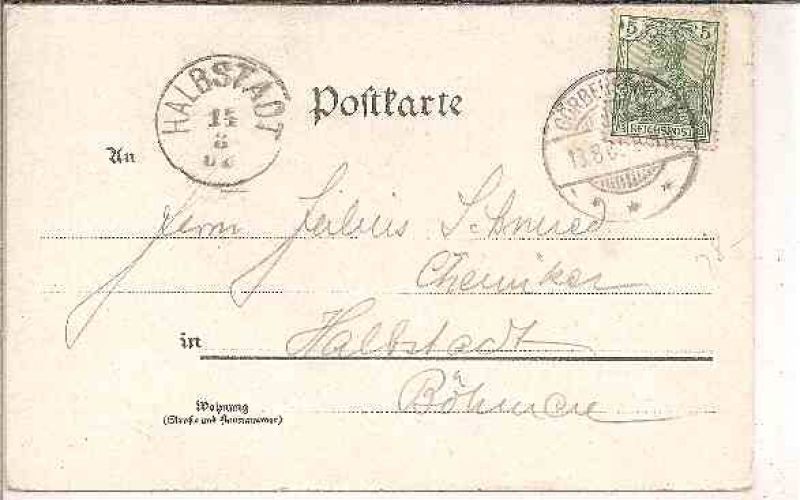 HALBSTADT
15
8
02
5 5
REICHSPOST
13.8.
Postkarte
An
Herrn Julius Schmied
Chemiker
in Halbstadt
Wohnung Böhmen
(Straße und Hausnummer)